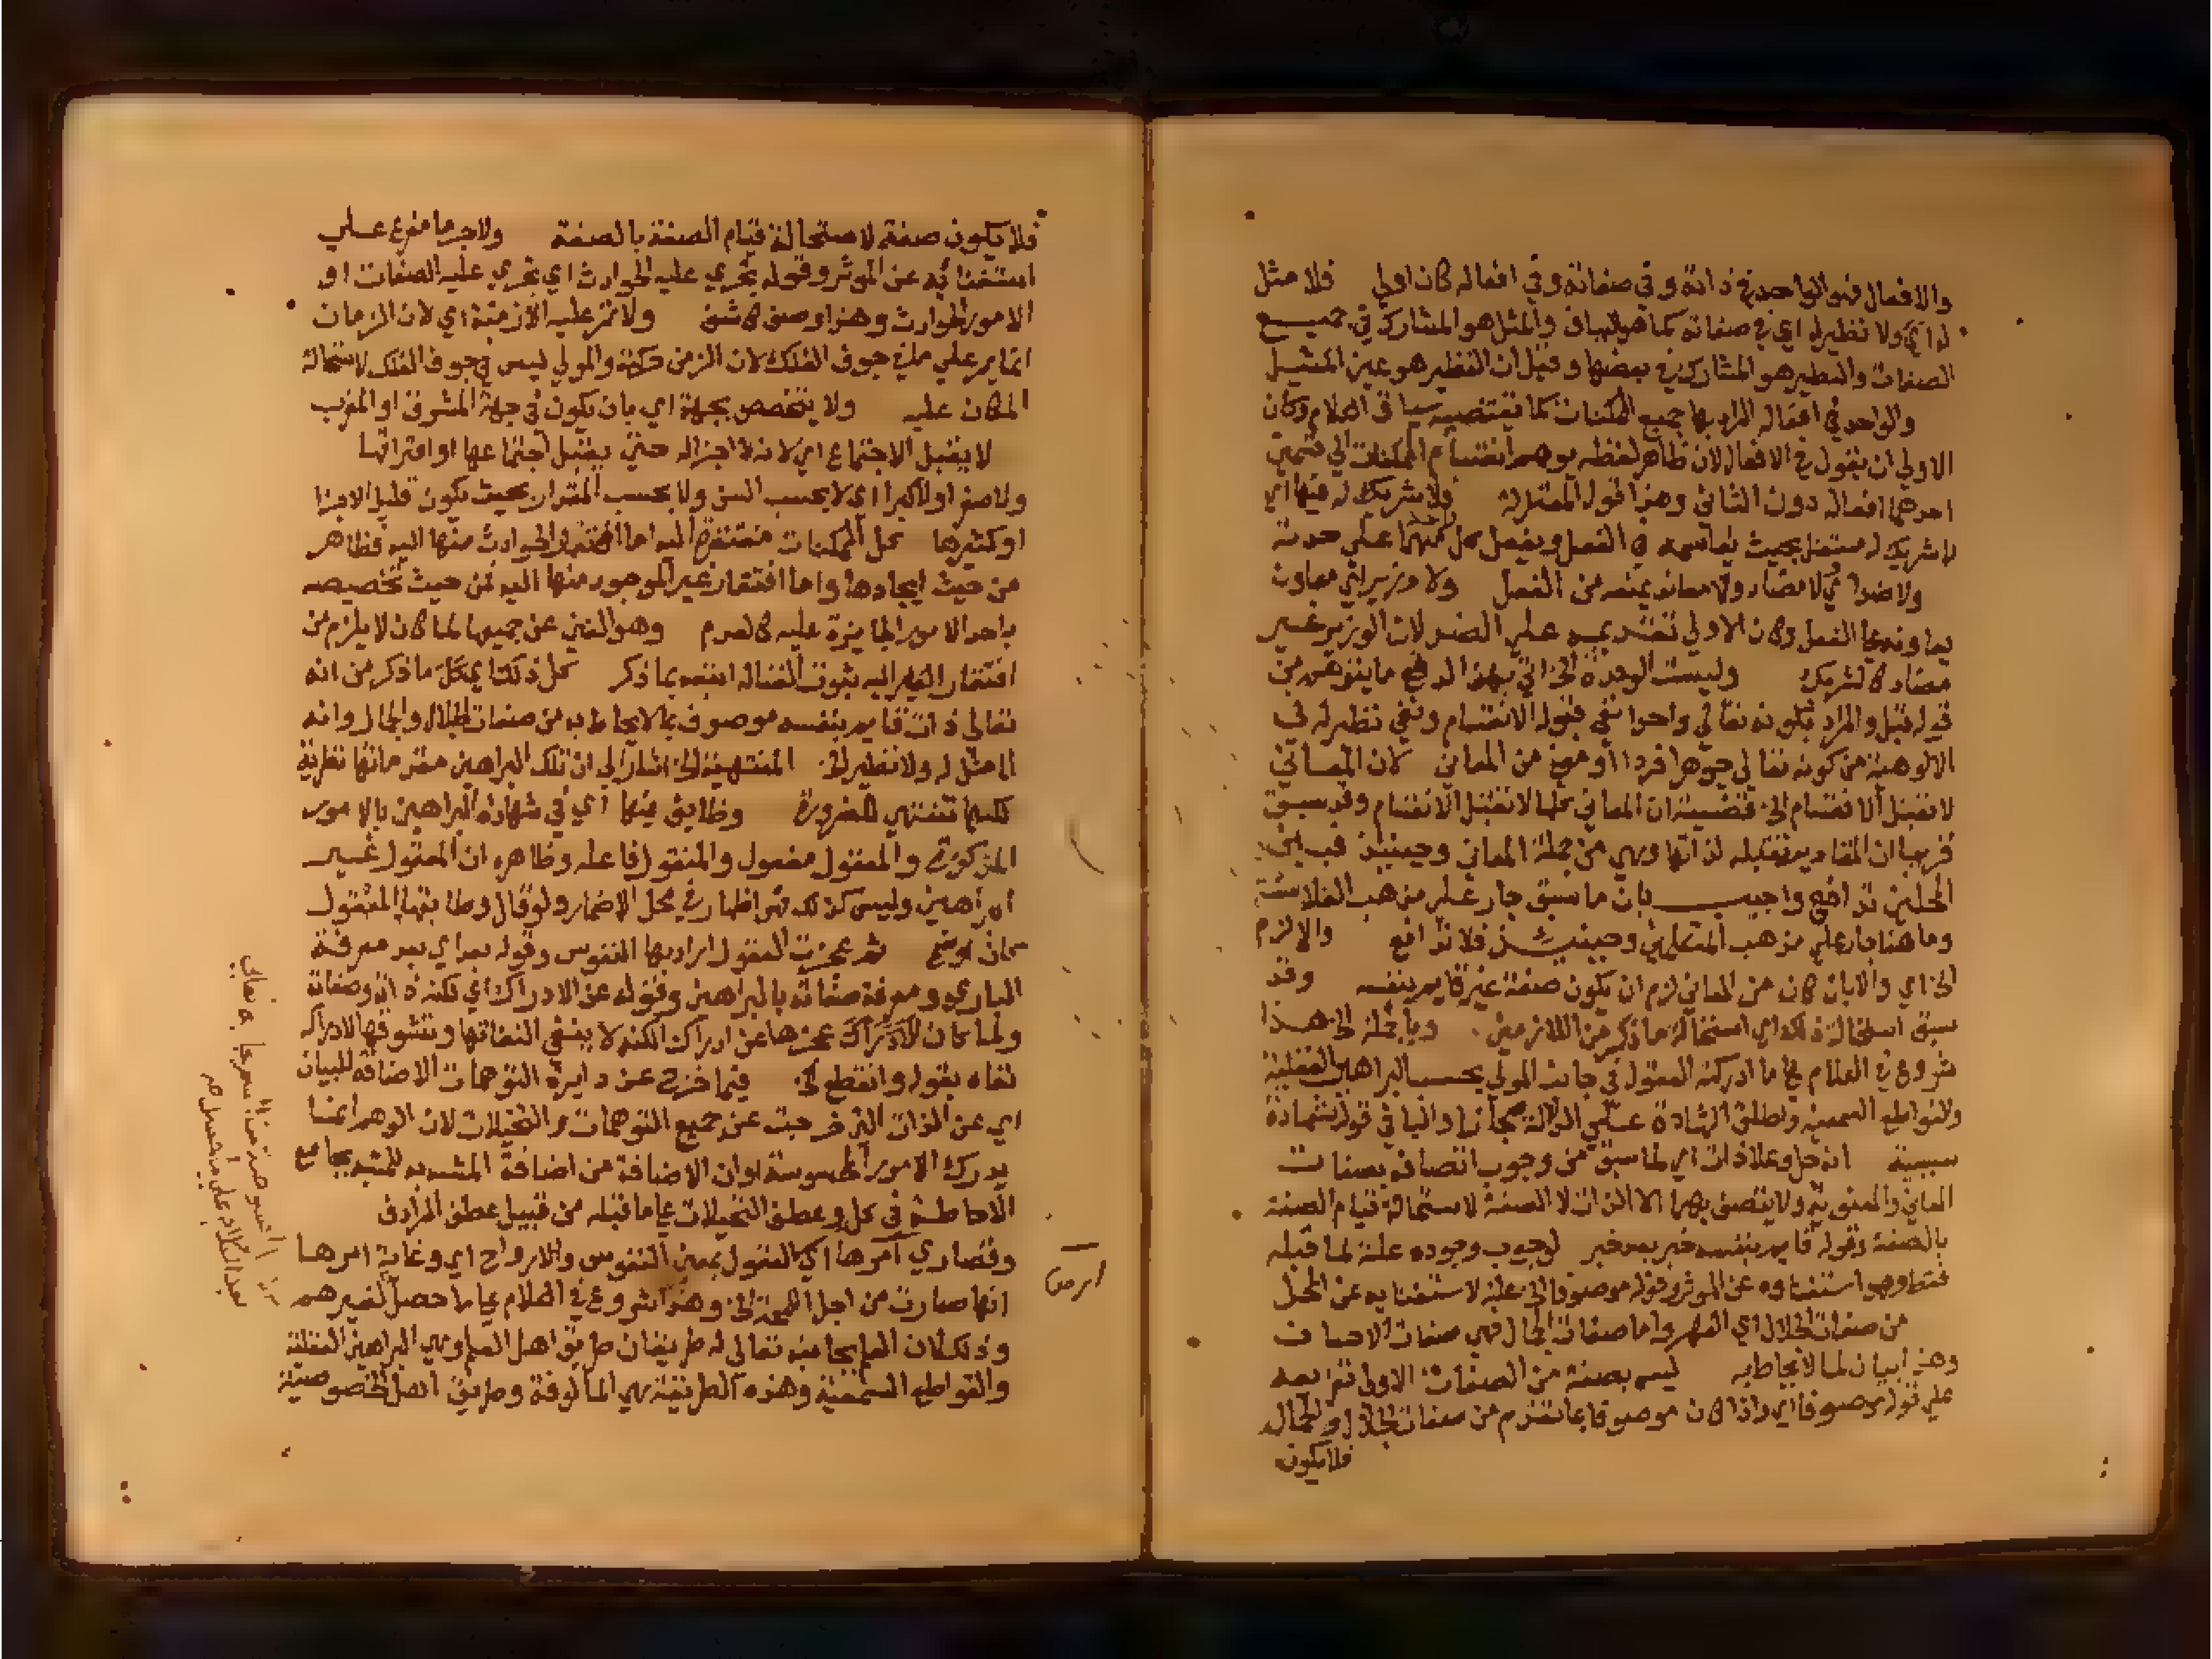 والافعال فهو الواحد في ذاته وفي صفاته وفي افعاله كان اولي فلا مثل
له اي ولا نظير له اي في صفاته كما هو المباق والمثل هو المشارك في جميع
الصفات والنظير هو المشارك في بعضها وقيل ان النظير هو عين المثيل
والواحد في افعاله المراد بها جميع الممكنات كما يقتضيه سياق الكلام وكان
الاولي ان يقول في الافعال لان ظاهر لفظه يوهم انقسام الممكنات الي قسمين
احدهما افعاله دون الثاني وهذا قول المعتزله فلا شريك له فيها اي
لا شريك له مستقل بحيث يقاسمه في الفعل ويفعل كل منهما علي حدته
ولا ضد اي لا مضاد ولا معاند يمنعه من الفعل ولا وزير اي معاون
يعاونه في الفعل وكان الاولي تقديمه علي الضد لان الوزير غير
مضاد كالشريك وليست الوحدة الخ اتي بهذا الدفع ما يتوهم من
قوله قبل والمراد بكونه تعالي واحدا نفي قبوله الانقسام ونفي نظير له في
الالوهية من كونه تعالي جوهرا فردا او معني من المعاني لان المعاني
لا تقبل الانقسام الخ قضيته ان المعاني كلها لا تقبل الانقسام وقد سبق
قريبا ان المقادير تقبله لذاتها وهي من جملة المعاني وحينيذ فبين
المحلين تدافع واجيب بان ما سبق جار علي مذهب الفلاسفة
وما هنا جار علي مذهب المتكلمين وحينيذ فلا تدافع والا لزم
الخ اي والا بان كان من المعاني لزم ان يكون صفة غير قايم بنفسه وقد
سبق استحالة ذلك اي استحالة ما ذكر من اللازمين وبالجملة الخ هذا
شروع في الكلام في ما ادركته العقول في جانب المولي بحسب البراهين العقلية
والقواطع السمعية واطلق الشهادة علي الدلالة مجازا والبا في قوله بشهادة
سببية انه جل وعلا ذات اي لما سبق من وجوب اتصافه بصفات
المعاني والمعنوية ولا يتصف بهما الا الذات لا الصفة لاستحالة قيام الصفة
بالصفة وقوله قايم بنفسه خبر بعد خبر لوجوب وجوده علة لما قبله
فقط وهو استغناوه عن الموثر وقوله موصوفا الخ علة لاستغنايه عن المحل
من صفات الجلال اي القهر واما صفات الجمال فهي صفات الاحسان
وهذا بيان لما لا يحاط به ليس بصفة من الصفات الاولي تفريعه
علي قوله موصوفا اي واذا كان موصوفا بما تقدم من صفات الجلال او الجمال
فلا يكون
فلا يكون صفة لاستحالة قيام الصفة بالصفة ولا جرما مفرع علي
استغنايه عن الموثر وقوله تجري عليه الحوادث اي تجري عليه الصفات او
الامور الحوادث وهذا وصف كاشف ولا تمر عليه الازمنة اي لان الزمان
انما يمر علي ما في جوف الفلك لان الزمن حركته والمولي ليس في جوف الفلك لاستحالة
المكان عليه ولا يتخصص بجهة اي بان يكون في جهة المشرق او المغرب
لا يقبل الاجتماع اي لانه لا اجزا له حتي يقبل اجتماعها او افتراقها
ولا صغرا ولا كبرا اي لا بحسب السن ولا بحسب المقدار بحيث يكون قليل الاجزا
او كثيرها كل الممكنات مفتقرة اليه اما افتقار الحوادث منها اليه فظاهر
من حيث ايجادها واما افتقار غير الموجود منها اليه فمن حيث تخصيصه
باحد الامور الجايزة عليه كالعدم وهو الغني عن جميعها لما كان لا يلزم من
افتقار الغير اليه ثبوت الغنا له اتبعه بما ذكر كل ذلك اي كل ما ذكر من انه
تعالي ذات قايم بنفسه موصوف بما لا يحاط به من صفات الجلال والجمال وانه
لا مثل له ولا نظير الخ المنتهية الخ اشار الي ان تلك البراهين مقدماتها نظرية
لكنها تنتهي للضرورة وطابق فيها اي في شهادة البراهين بالامور
المذكورة والمعقول مفعول والمنقول فاعله وظاهره ان المعقول غير
البراهين وليس كذلك فهو اظهار في محل الاضمار ولو قال وطابقها المنقول
كان اوضح ثم عجزت العقول اراد بها النفوس وقوله بعد اي بعد معرفة
الباري ومعرفة صفاته بالبراهين وقوله عن الادراك اي لكنه ذاته وصفاته
ولما كان الادراك عجزها عن ادراك الكنه لا ينفي التفاتها وتشوقها لادراكه
نفاه بقوله وانقطع الخ فيما خرج عن دايرة التوهمات الاضافة للبيان
اي عن الذات التي خرجت عن جميع التوهمات والتخيلات لان الوهم انما
يدرك الامور المحسوسة او ان الاضافة من اضافة المشبه به للمشبه بجامع
الاحاطة في كل وعطف التخيلات علي ما قبله من قبيل عطف المرادف
وقصاري امرها اي العقول بمعني النفوس والارواح اي وغاية امرها
انها صارت من اجل الخ وهذا شروع في الكلام علي ما حصل لغيرهم
وذلك لان العلم بجانبه تعالي له طريقان طريق اهل العلم وهي البراهين العقلية
والقواطع السمعية وهذه الطريقة هي المالوفة وطريق اهل الخصوصية